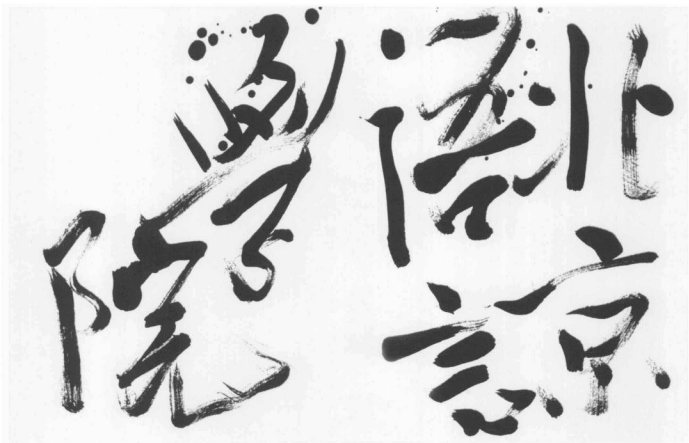 北京
语言
學院